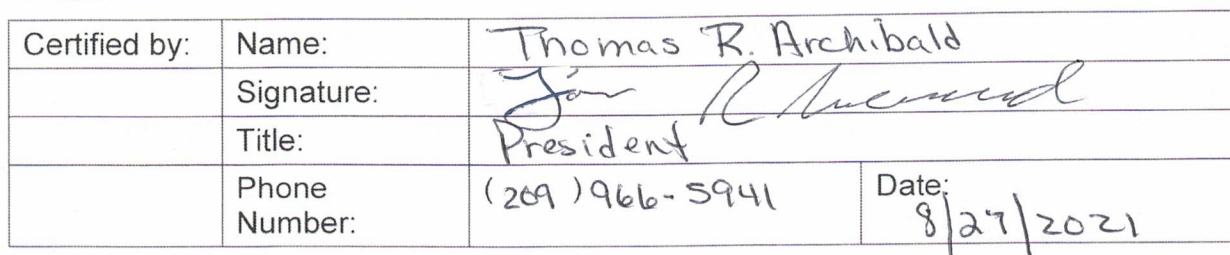 Certified by: Name: Thomas R. Archibald
Signature:
Title: President
Phone Number: (209) 966-5941 Date: 8/27/2021